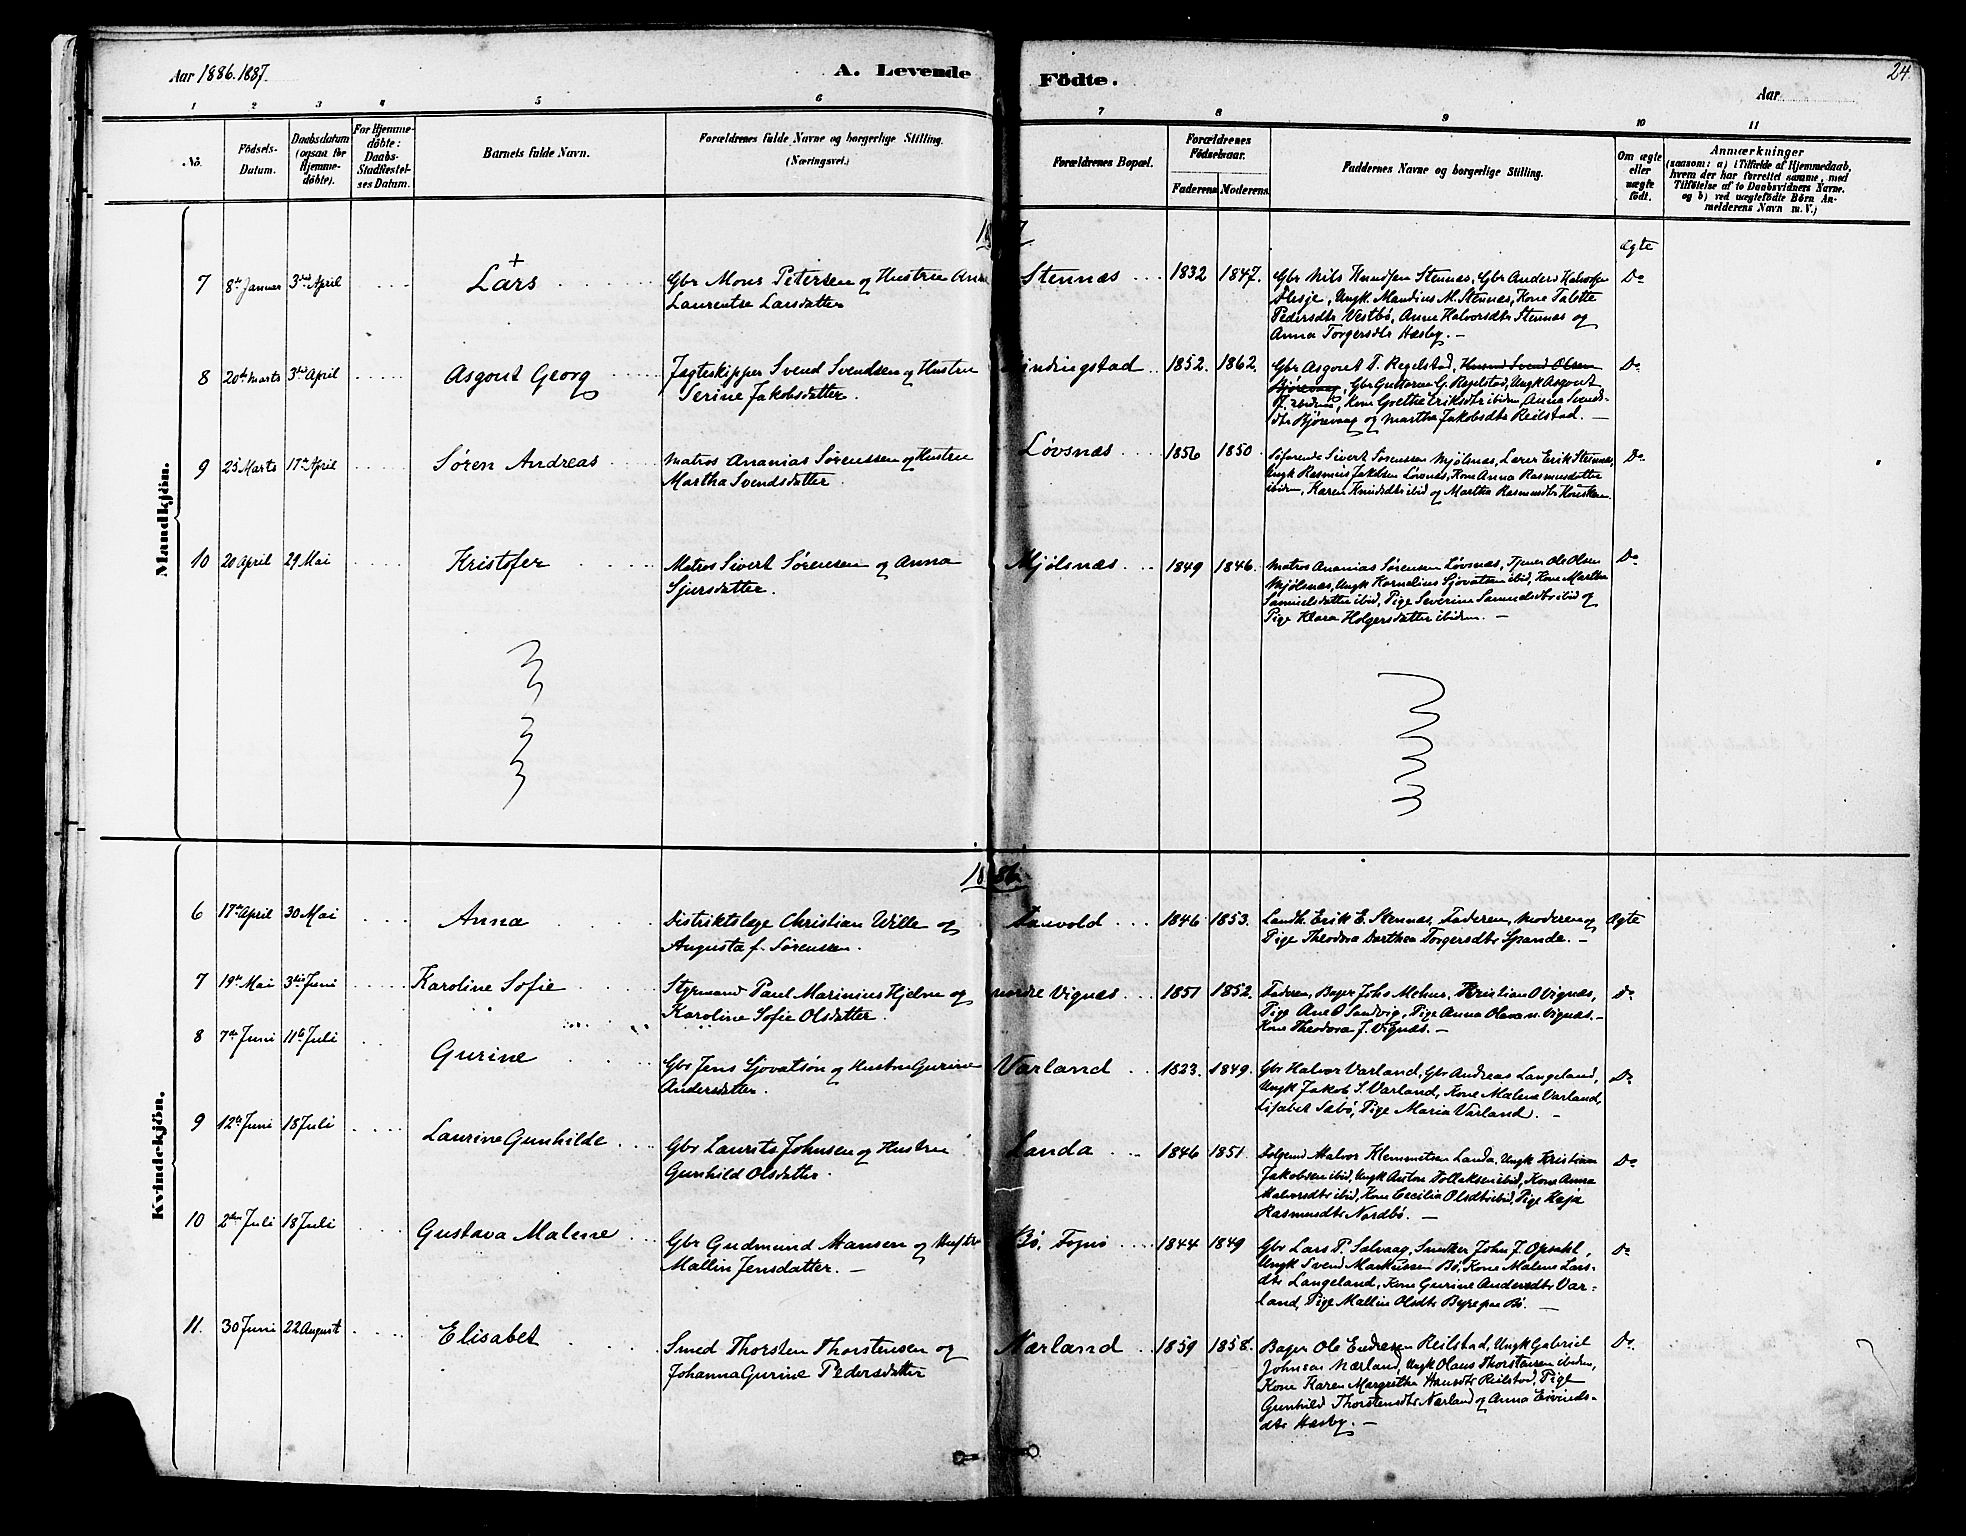 Aar 1886.1887.
A. Levende Födte.
Aar
24
1 2 3 4 5 6 7 8 9 10 11
No.
Födsels-Datum.
Daabsdatum (ogsaa for Hjemme-döbte).
For Hjemme-döbte: Daabs-Stadfæstel-ses Datum.
Barnets fulde Navn.
Forældrenes fulde Navne og borgerlige Stilling.
(Næringsvei.)
Forældrenes Bopæl.
Forældrenes Födselsaar.
Faderens Moderens.
Faddernes Navne og borgerlige Stilling.
Om ægte eller uægte födt.
Anmærkninger
(saasom: a) i Tilfælde af Hjemmedaab,
hvem der har forrettet samme, med
Tilföielse af to Daabsvidners Navne.
og b) ved uægtefödte Börn An-
melderens Navn m. V.)
Mandkjön.
Ægte
7 8de Januar 3die April Lars Gbr Mons Petersen og Hustru Anna
Laurentse Larsdatter
Stennæs 1832 1847. Gbr Nils Knudsen Stennæs, Gbr Anders Halvorsen
Flesje, Ungk. Mandius M. Stennæs, Kone Talette
Pedersdtr Vestbø, Anne Halvorsdtr Stennæs og
Anna Torgersdtr Hæsby. —
Do
8 20de Marts 3die April Asgout Georg Jagteskipper Svend Svendsen og Hustru
Serine Jakobsdatter.
1852. 1862. Gbr Asgout T. Regelstad, Husmd Svend Olsen
Bjørevaag, Gbr Guttorm G. Regelstad, Ungk Asgout
ibidem, Kone Grethe Eriksdtr ibidem Anna Svends-
dtr Bjørevaag og Martha Jakobsdtr Reilstad. —
Do
9 25 Marts 17de April Søren Andreas Matros Ananias Sørenssen og Hustru
Martha Svendsdatter.
Løvsnæs 1856 1850 Søfarende Sivert Sørenssen Mjølsnæs, Lærer Erik Stennæs,
Ungk Rasmus Jakobsen Løvsnæs, Kone Anna Rasmusdatter
ibidem, Karen Knudsdtr ibid og Martha Rasmusdtr
Do
10 20 April 29 Mai Kristofer Matros Sivert Sørensen og Anna
Sjursdatter.
Mjølsnæs 1849 1846. Matros Ananias Sørensen Løvsnæs, Tjener Ole Olsen
Mjølsnæs, Ungk Kornelius Sjovatsen ibid, Kone Martha
Samuelsdatter ibid, Pige Severine Samuelsdtr ibid og
Pige Klara Holgersdatter ibidem. —
Do
Kvindekjön.
1886.
6 17de April 30 Mai Anna Distriktslæge Christian Wille og
Augusta f. Sørensen.
1846 1853. Landh. Erik E. Stennæs, Faderen, Moderen og
Pige Theodora Dorthea Torgersdtr Spande. —
Ægte
7 19de Mai 3die Juni Karoline Sofie Styrmand Paul Marinius Hjelm og
Karoline Sofie Olsdatter.
nordre Vignæs 1851 1852. Faderen, Bager Johs Mehus, Kristian O Vignæs,
Pige Ane O Sandvig, Pige Anna Olava n. Vignæs. —
Kone Theodora J. Vignæs. —
Do
8 7de Juni 11te Juli Gurine Gbr Jens Sjovatsøn og Hustru Gurine
Andersdatter.
Varland 1823. 1849. Gbr Halvor Varland, Gbr Andreas Langeland,
Ungk Jakob S. Varland, Kone Malena Varland,
Lisabet Sæbø, Pige Maria Varland. —
Do
9 12te Juni 18 Juli Laurine Gunhilde Gbr Laurits Johnsen og Hustru
Gunhild Olsdatter.
Landa 1846 1851. Halvor Klemmetsen Landa, Ungk Kristian
Jakobsen ibid, Ungk Anton Tollaksen ibid, Kone Anna
Halvorsdtr ibid, Kone Cecilia Olsdtr ibid, Pige Kaja
Rasmusdtr Nordbø. —
Do
10 2den Juli 18 Juli Gustava Malene Gbr Gudmund Hansen og Hustru
Mallin Jensdatter. —
Bø, Fogn 1844 1849 Gbr Lars P. Salvaag, Snedker John J. Opsahl,
Ungk Svend Markussen Bø, Kone Malene Lars-
dtr Langeland, Kone Gurine Andersdtr Var-
land, Pige Mallin Olsdtr Byre paa Bø. —
Do
11. 30 Juni 22 August Elisabet Smed Thorsten Thorstensen og
Johanna Gurine Pedersdatter
Nærland 1859 1858. Bager Ole Endresen Reilstad, Ungk Gabriel
Johnsen Nærland, Ungk Olaus Thorstensen ibidem,
Kone Karen Margrethe Hansdtr Reilstad, Pige
Gunhild Thorstensdtr Nærland og Anna Eivinds-
dtr Hæsby. —
Do